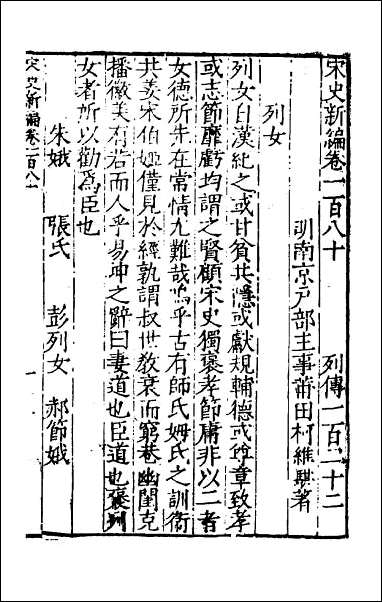 宋史新編卷一百八十　列傳一百二十二
明南京戶部主事莆田柯維騏著
列女
列女自漢紀之或甘貧共隱或獻規輔德或毀章致孝
或志節靡虧均謂之賢顧宋史獨褒孝節庸非以二者
女德所先在常情尤難哉嗚乎古有師氏姆氏之訓衛
共姜宋伯姬僅見於經孰謂叔世教衰而窮巷幽閨克
播徽美有若而人乎易坤之辭曰妻道也臣道也褒列
女者所以勸爲臣也
朱娥　張氏　彭列女　郝節娥
宋史新編卷一百八十　一